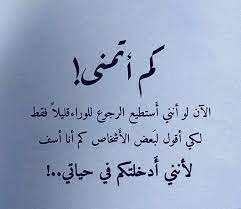 كم أتمنى!
الآن لو أنني أستطيع الرجوع للوراء قليلاً فقط
لكي أقول لبَعض الأشخاص كم أنا أسف
لأنني أَدخلتكم في حياتي..!